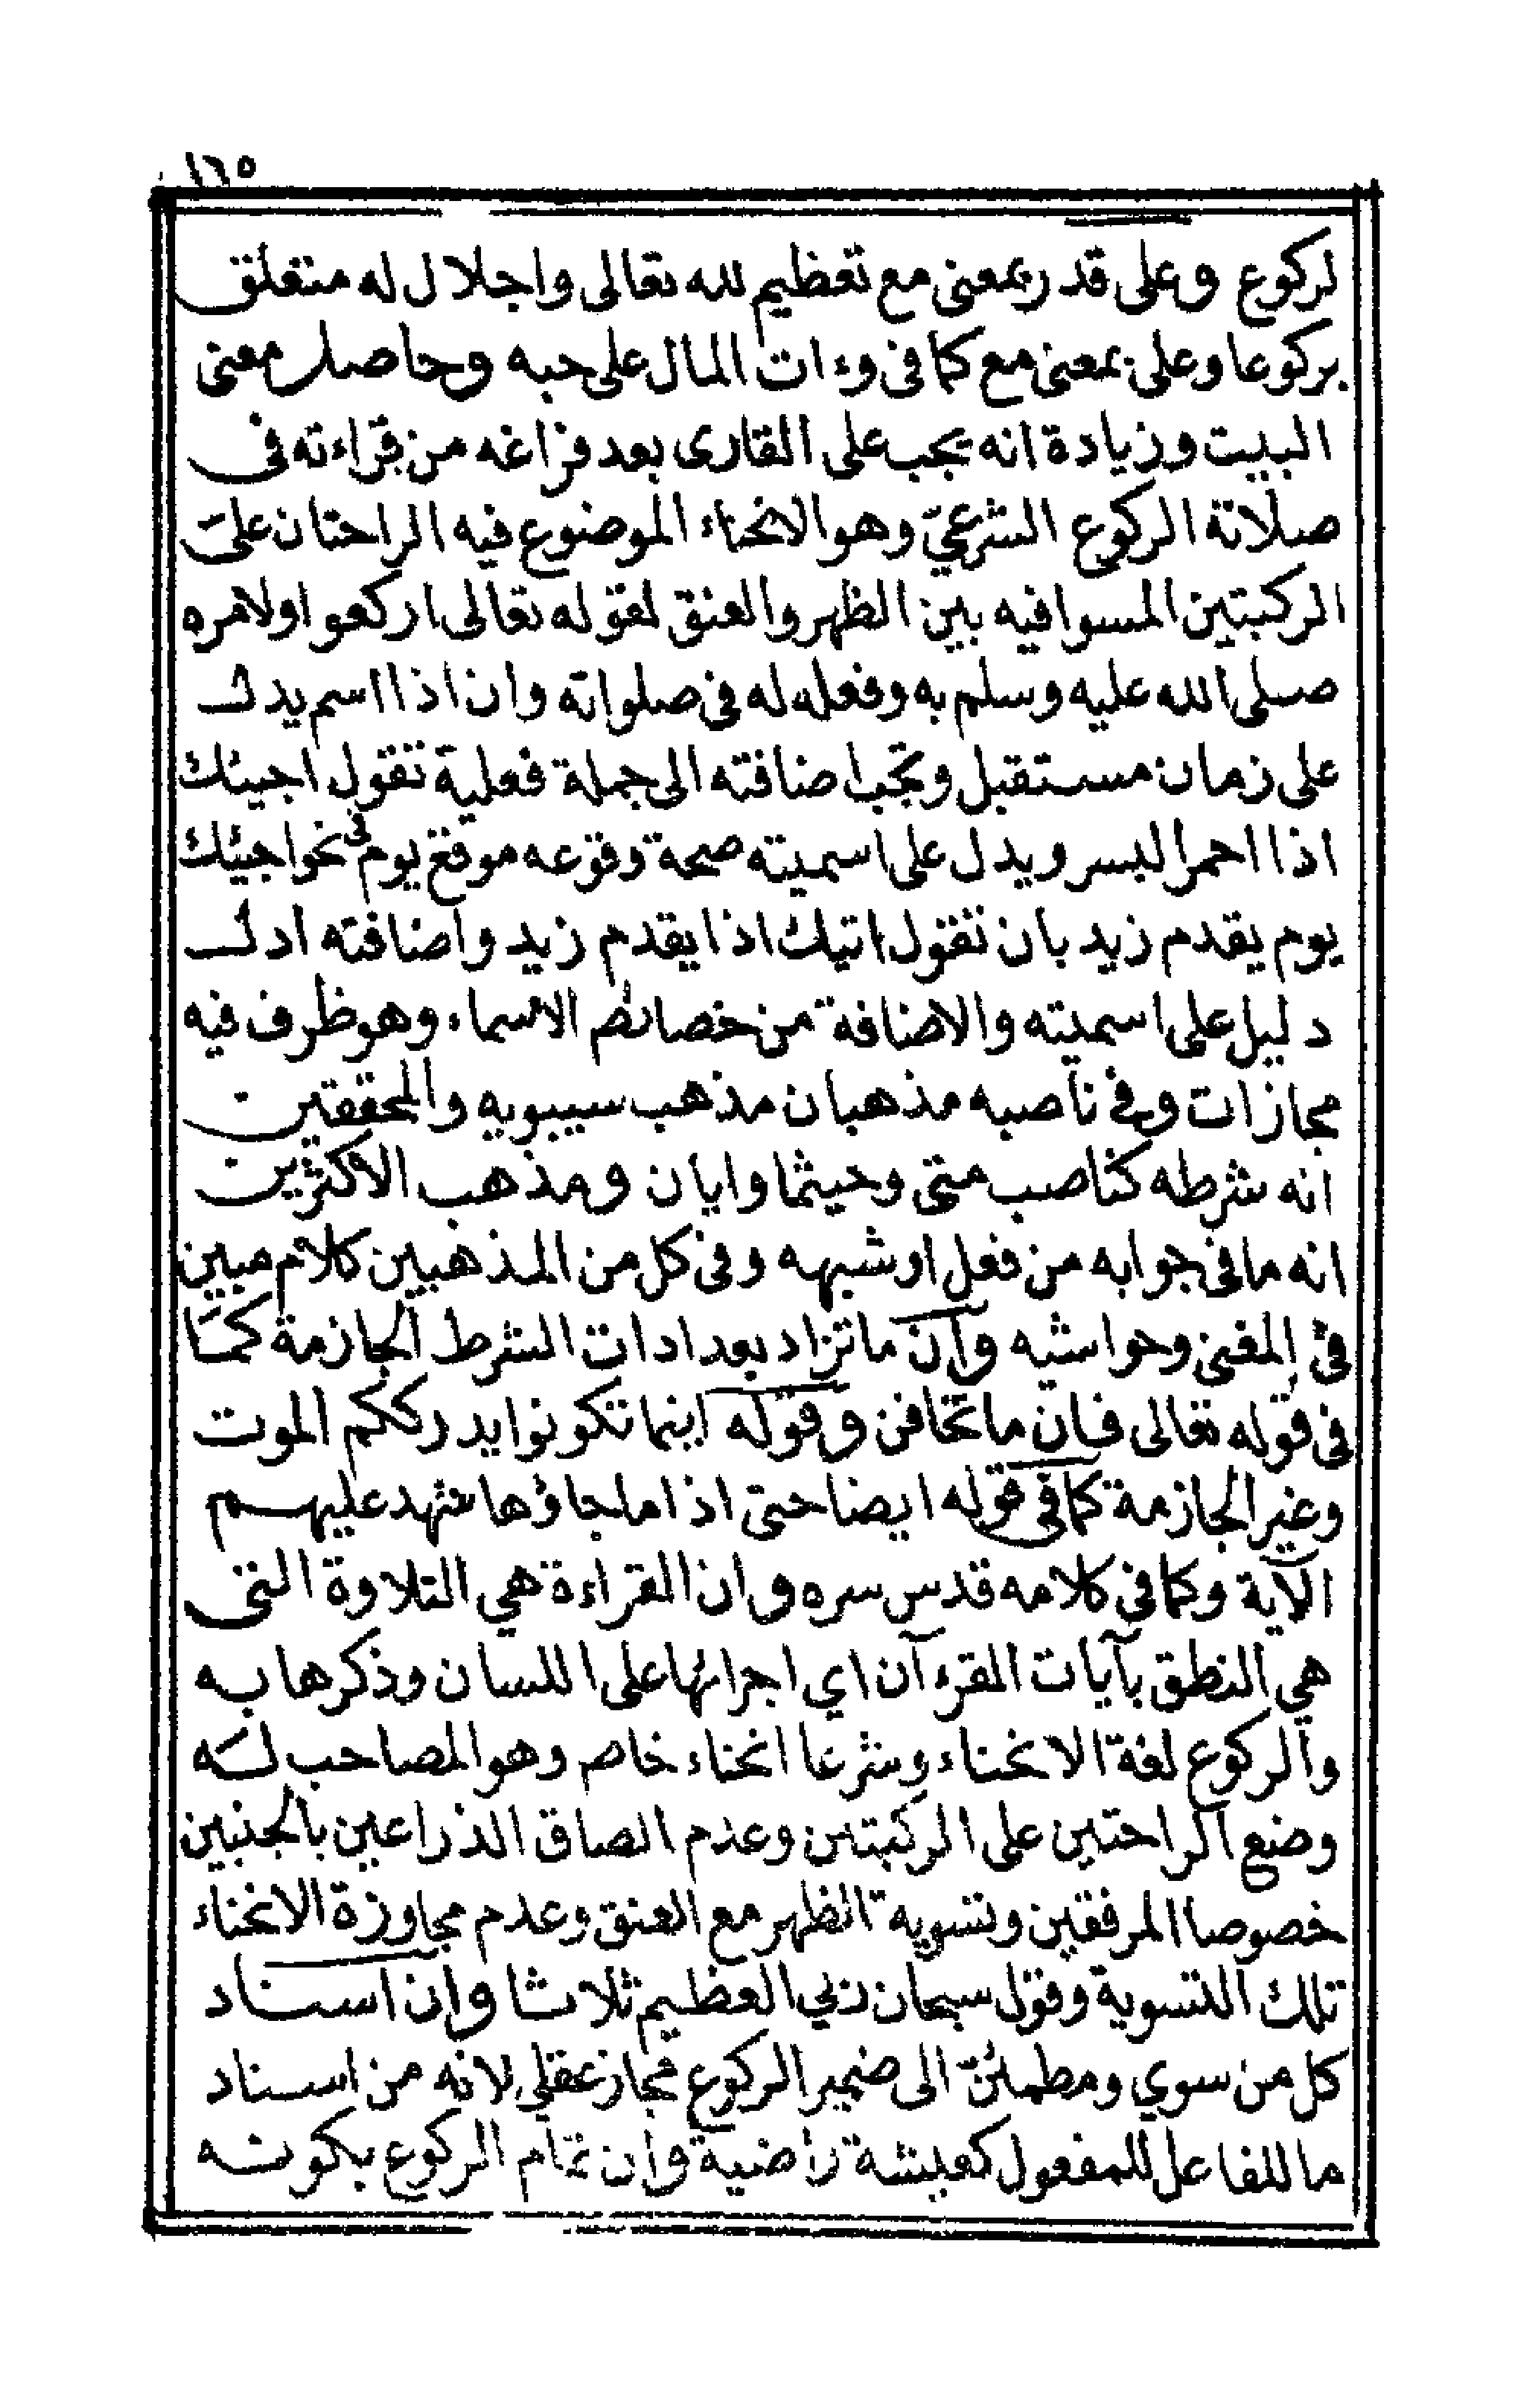 ١٦٥
لركوع وعلى قدر بمعنى مع تعظيم لله تعالى واجلال له متعلق
بركوعا وعلى بمعنى مع كما في وءات المال على حبه وحاصل معنى
البيت وزيادة انه يجب على القارى بعد فراغه من قراءته فى
صلاته الركوع الشرعيّ وهو الانحناء الموضوع فيه الراحتان على
الركبتين المسوا فيه بين الظهر والعنق لقوله تعالى اركعوا ولامره
صلى الله عليه وسلم به وفعله له في صلواته وان اذا اسم يدل
على زمان مستقبل وتجب اضافته الى جملة فعلية تقول اجيئك
اذا احمر البسر ويدل على اسميته صحة وقوعه موقع يوم في نحو اجيئك
يوم يقدم زيد بان تقول اتيك اذا يقدم زيد واضافته ادل
دليل على اسميته والاضافة من خصائص الاسماء وهو ظرف فيه
مجازات وفي ناصبه مذهبان مذهب سيبويه والمحققين
انه شرطه كناصب متى وحيثما وايان ومذهب الاكثرين
انه ما في جوابه من فعل او شبهه وفى كل من المذهبين كلام مبين
في المغنى وحواشيه وان ما تزاد بعد ادات الشرط الجازمة كما
فى قوله تعالى فان ما تخافن وقوله اينما تكونوا يدرككم الموت
وغير الجازمة كما فى قوله ايضا حتى اذا ما جاؤها شهد عليهم
الآية وكما في كلامه قدس سره وان القراءة هي التلاوة التى
هي النطق بآيات القرءآن اي اجرائها على اللسان وذكرها به
والركوع لغة الانحناء وشرعا انحناء خاص وهو المصاحب له
وضع الراحتين على الركبتين وعدم الصاق الذراعين بالجنبين
خصوصا المرفقين وتسوية الظهر مع العنق وعدم مجاوزة الانحناء
تلك التسوية وقول سبحان ربي العظيم ثلاثا وان اسناد
كل من سوي ومطمئنّ الى ضمير الركوع مجاز عقلي لانه من اسناد
ما للفاعل للمفعول كعيشة راضية وان تمام الركوع بكونه